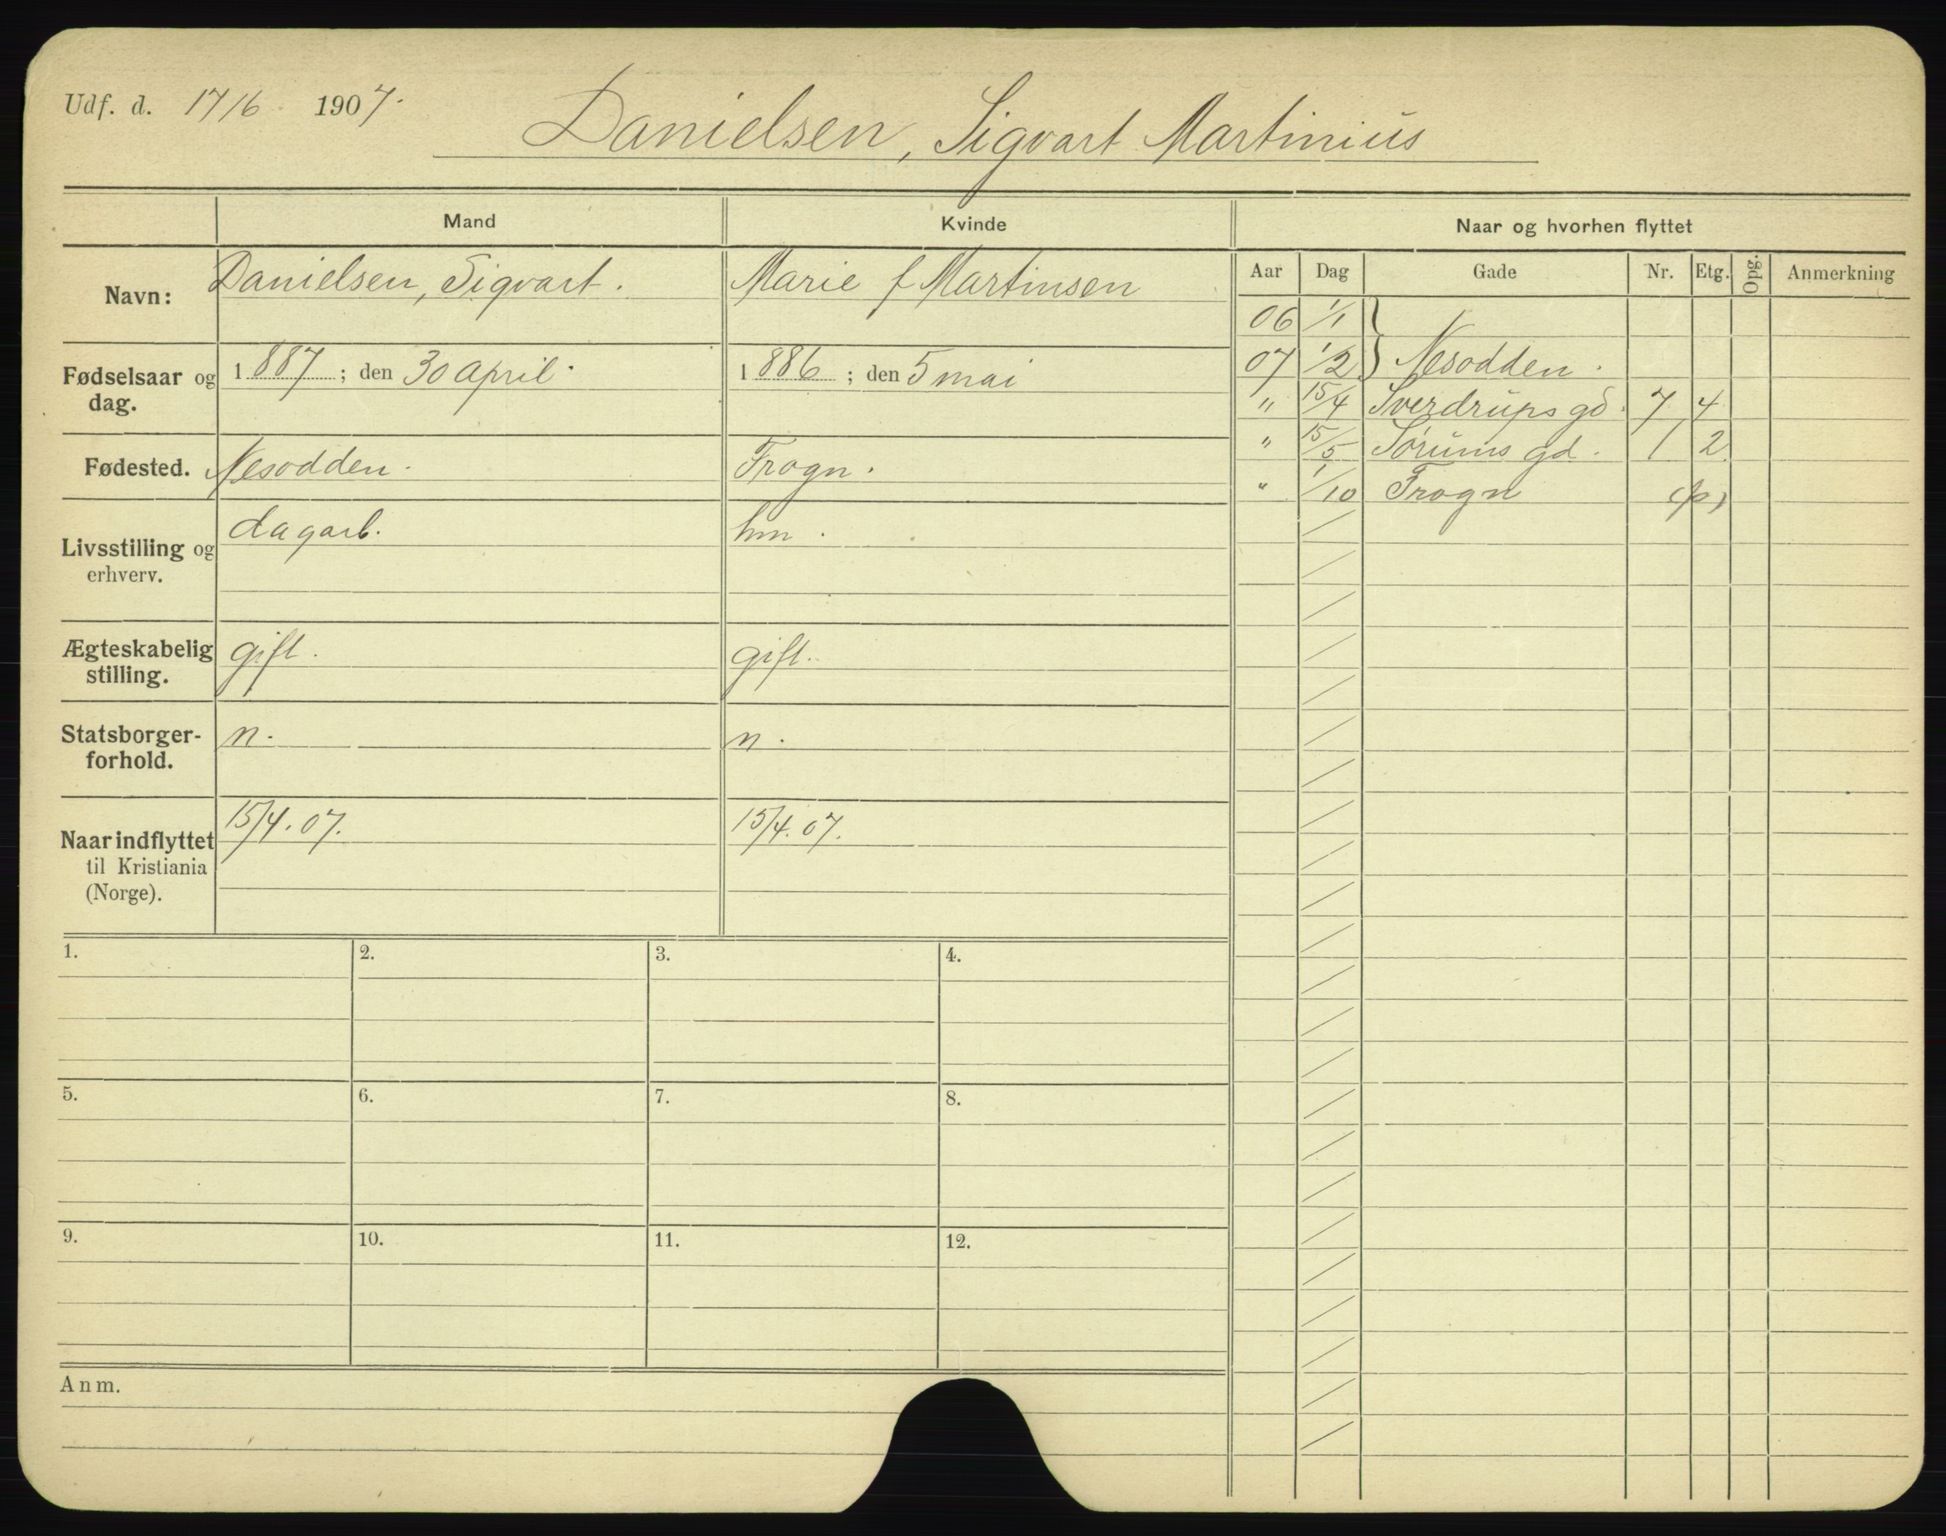 Udf. d. 17/6 1907.
Danielsen, Sigvart Martinius
Mand Kvinde Naar og hvorhen flyttet
Aar Dag Gade Nr. Etg. Opg. Anmerkning
Navn: Danielsen, Sigvart. Marie f Martinsen
Fødselsaar og dag. 1887; den 30 april. 1886; den 5 mai
Fødested. Nesodden. Frogn.
Livsstilling og erhverv. dagarb. hm.
Ægteskabelig stilling. gift. gift.
Statsborgerforhold. n. n.
Naar indflyttet til Kristiania (Norge). 15/4. 07. 15/4. 07.
06 1/1 }
07 1/2 } Nesodden.
" 15/4 Sverdrups gd. 7 4
" 15/5 Sørums gd. 1 2
" 1/10 Frogn (p)
1. 2. 3. 4.
5. 6. 7. 8.
9. 10. 11. 12.
Anm.